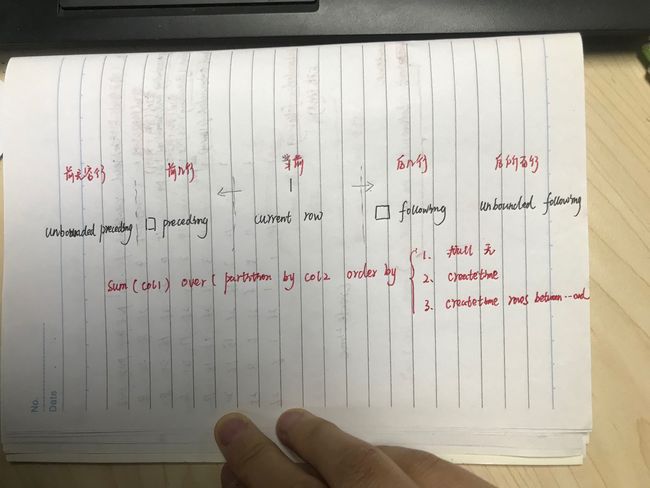 前n行 当前 后n行 后所有行
unbounded preceding □ preceding current row □ following unbounded following
sum(col1) over( partition by col2 order by
1. 无
2. createtime
3. createtime rows between…and
No.
Date